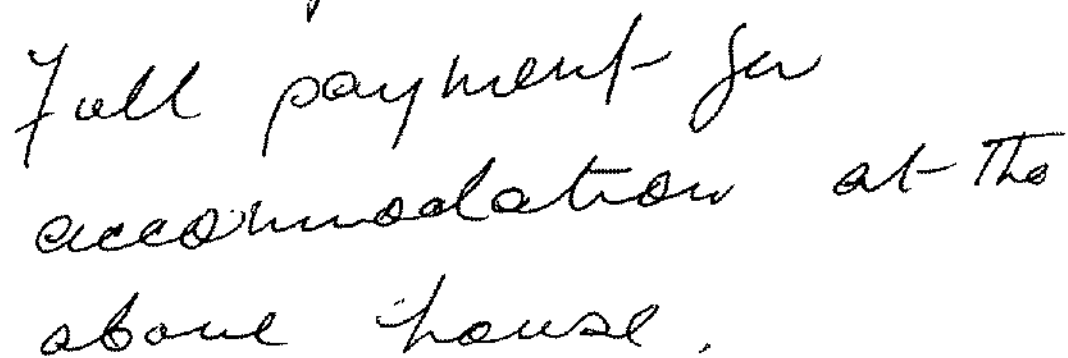 Full payment for
accomodation at the
above house.